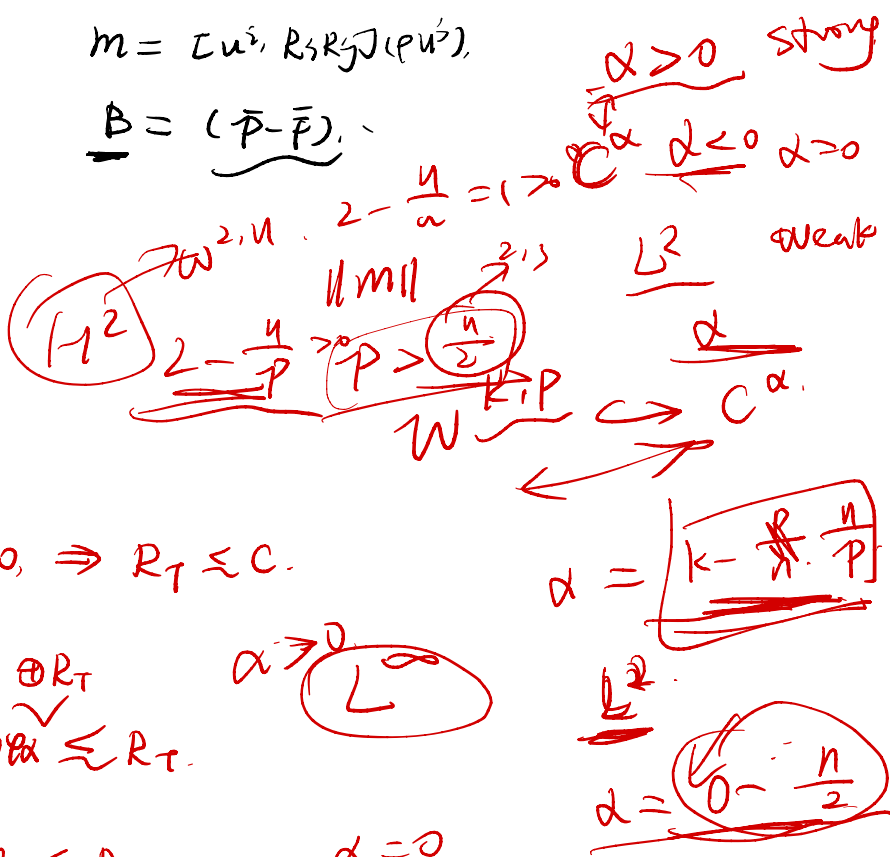 m = [u^i, R_i R_j](ρu^j).
B = (P̄ - F̄).
α > 0 strong
C^α α < 0 α = 0
2 - n/n = 1 > 0
W^{2,n}.
H^2
‖m‖
2,3
L^2 weak
2 - n/p > 0 p > n/2
α
W^{k,p} ↪ C^α.
0, ⇒ R_T ≤ C.
α = k - n/p
α > 0
L^∞
⊕R_T
≤ R_T.
L^2.
α = 0 - n/2
α = 0